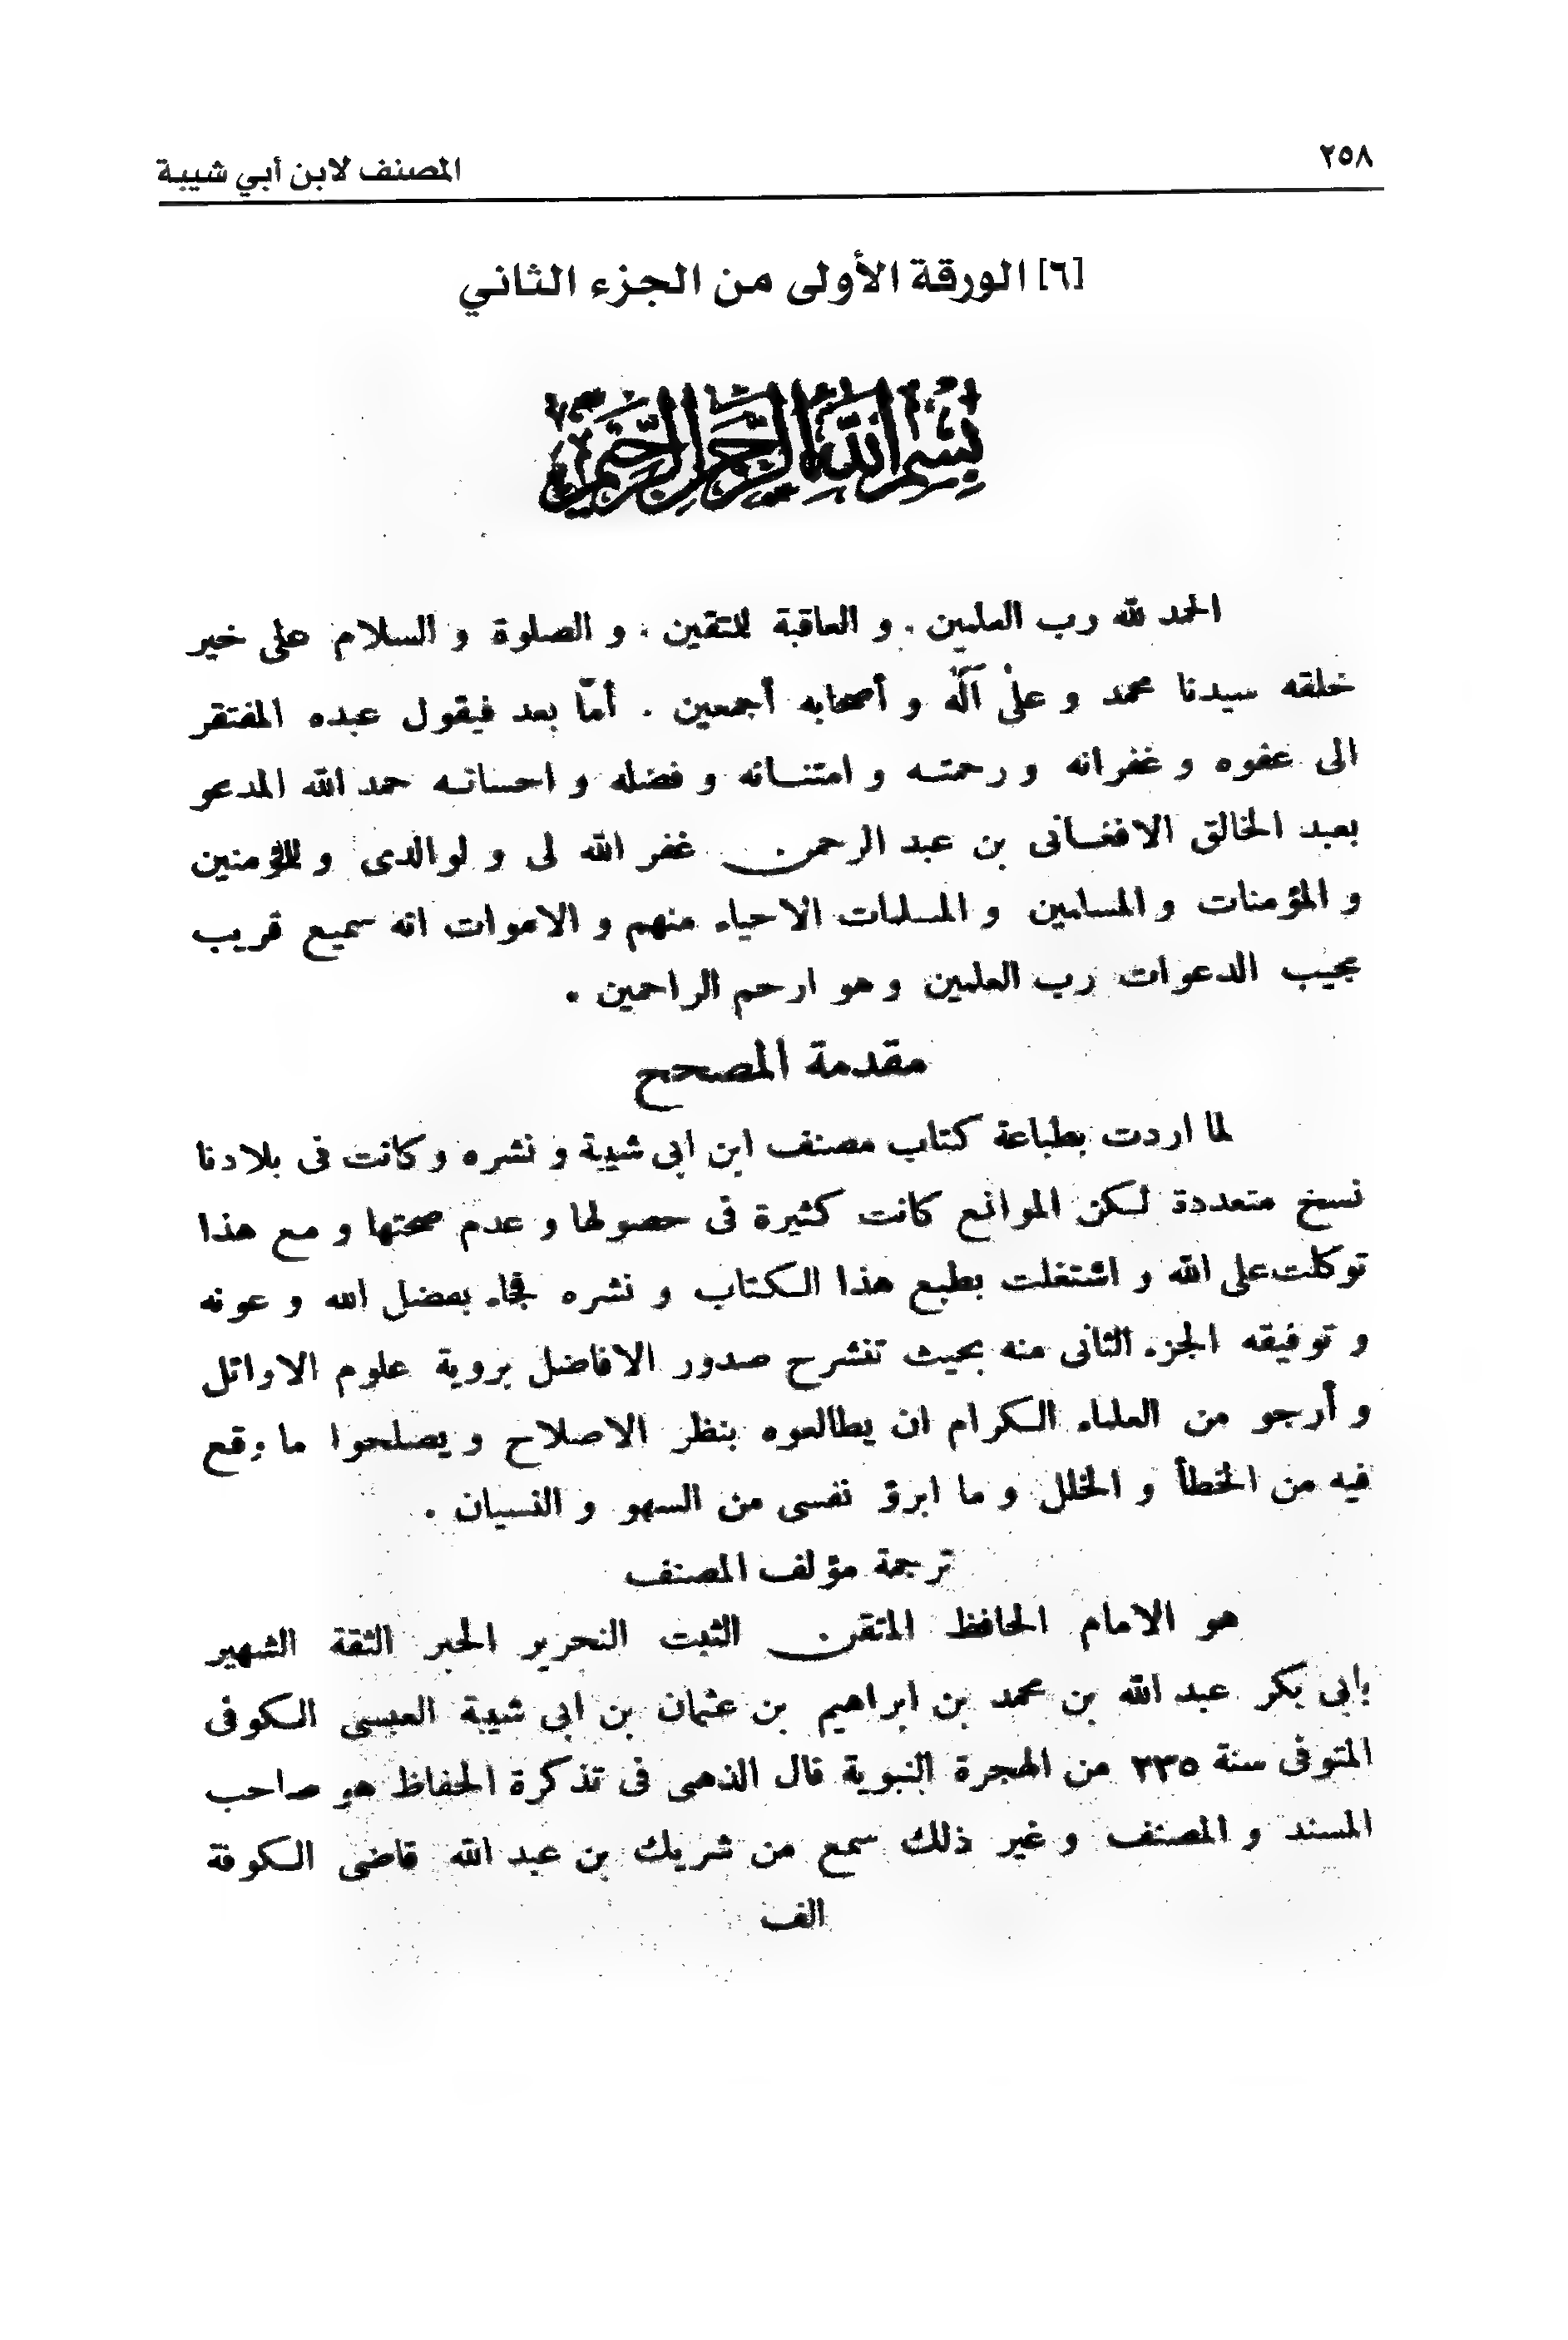 ٢٥٨
المصنف لابن أبي شيبة
[٦] الورقة الأولى من الجزء الثاني
بسم الله الرحمن الرحيم
الحمد لله رب العلمين . و العاقبة للمتقين . و الصلوة و السلام على خير
خلقه سيدنا محمد و على آله و أصحابه أجمعين . أمّا بعد فيقول عبده المفتقر
الى عفوه و غفرانه و رحمته و امتنانه و فضله و احسانه حمد الله المدعو
بعبد الخالق الافغانى بن عبد الرحمن غفر الله لى و لوالدى و للمؤمنين
و المؤمنات و المسلمين و المسلمات الاحياء منهم و الاموات انه سميع قريب
مجيب الدعوات رب العلمين و هو ارحم الراحمين .
مقدمة المصحح
لما اردت بطباعة كتاب مصنف ابن ابى شيبة و نشره و كانت فى بلادنا
نسخ متعددة لكن الموانع كانت كثيرة فى حصولها و عدم صحتها و مع هذا
توكلت على الله و اشتغلت بطبع هذا الكتاب و نشره فجاء بفضل الله و عونه
و توفيقه الجزء الثانى منه بحيث تنشرح صدور الافاضل بروية علوم الاوائل
و أرجو من العلماء الكرام ان يطالعوه بنظر الاصلاح و يصلحوا ما وقع
فيه من الخطأ و الخلل و ما ابرئ نفسى من السهو و النسيان .
ترجمة مؤلف المصنف
هو الامام الحافظ المتقن الثبت النحرير الحبر الثقة الشهير
بابى بكر عبد الله بن محمد بن ابراهيم بن عثمان بن ابى شيبة العبسى الكوفى
المتوفى سنة ٢٣٥ من الهجرة النبوية قال الذهبى فى تذكرة الحفاظ هو صاحب
المسند و المصنف و غير ذلك سمع من شريك بن عبد الله قاضى الكوفة
الف